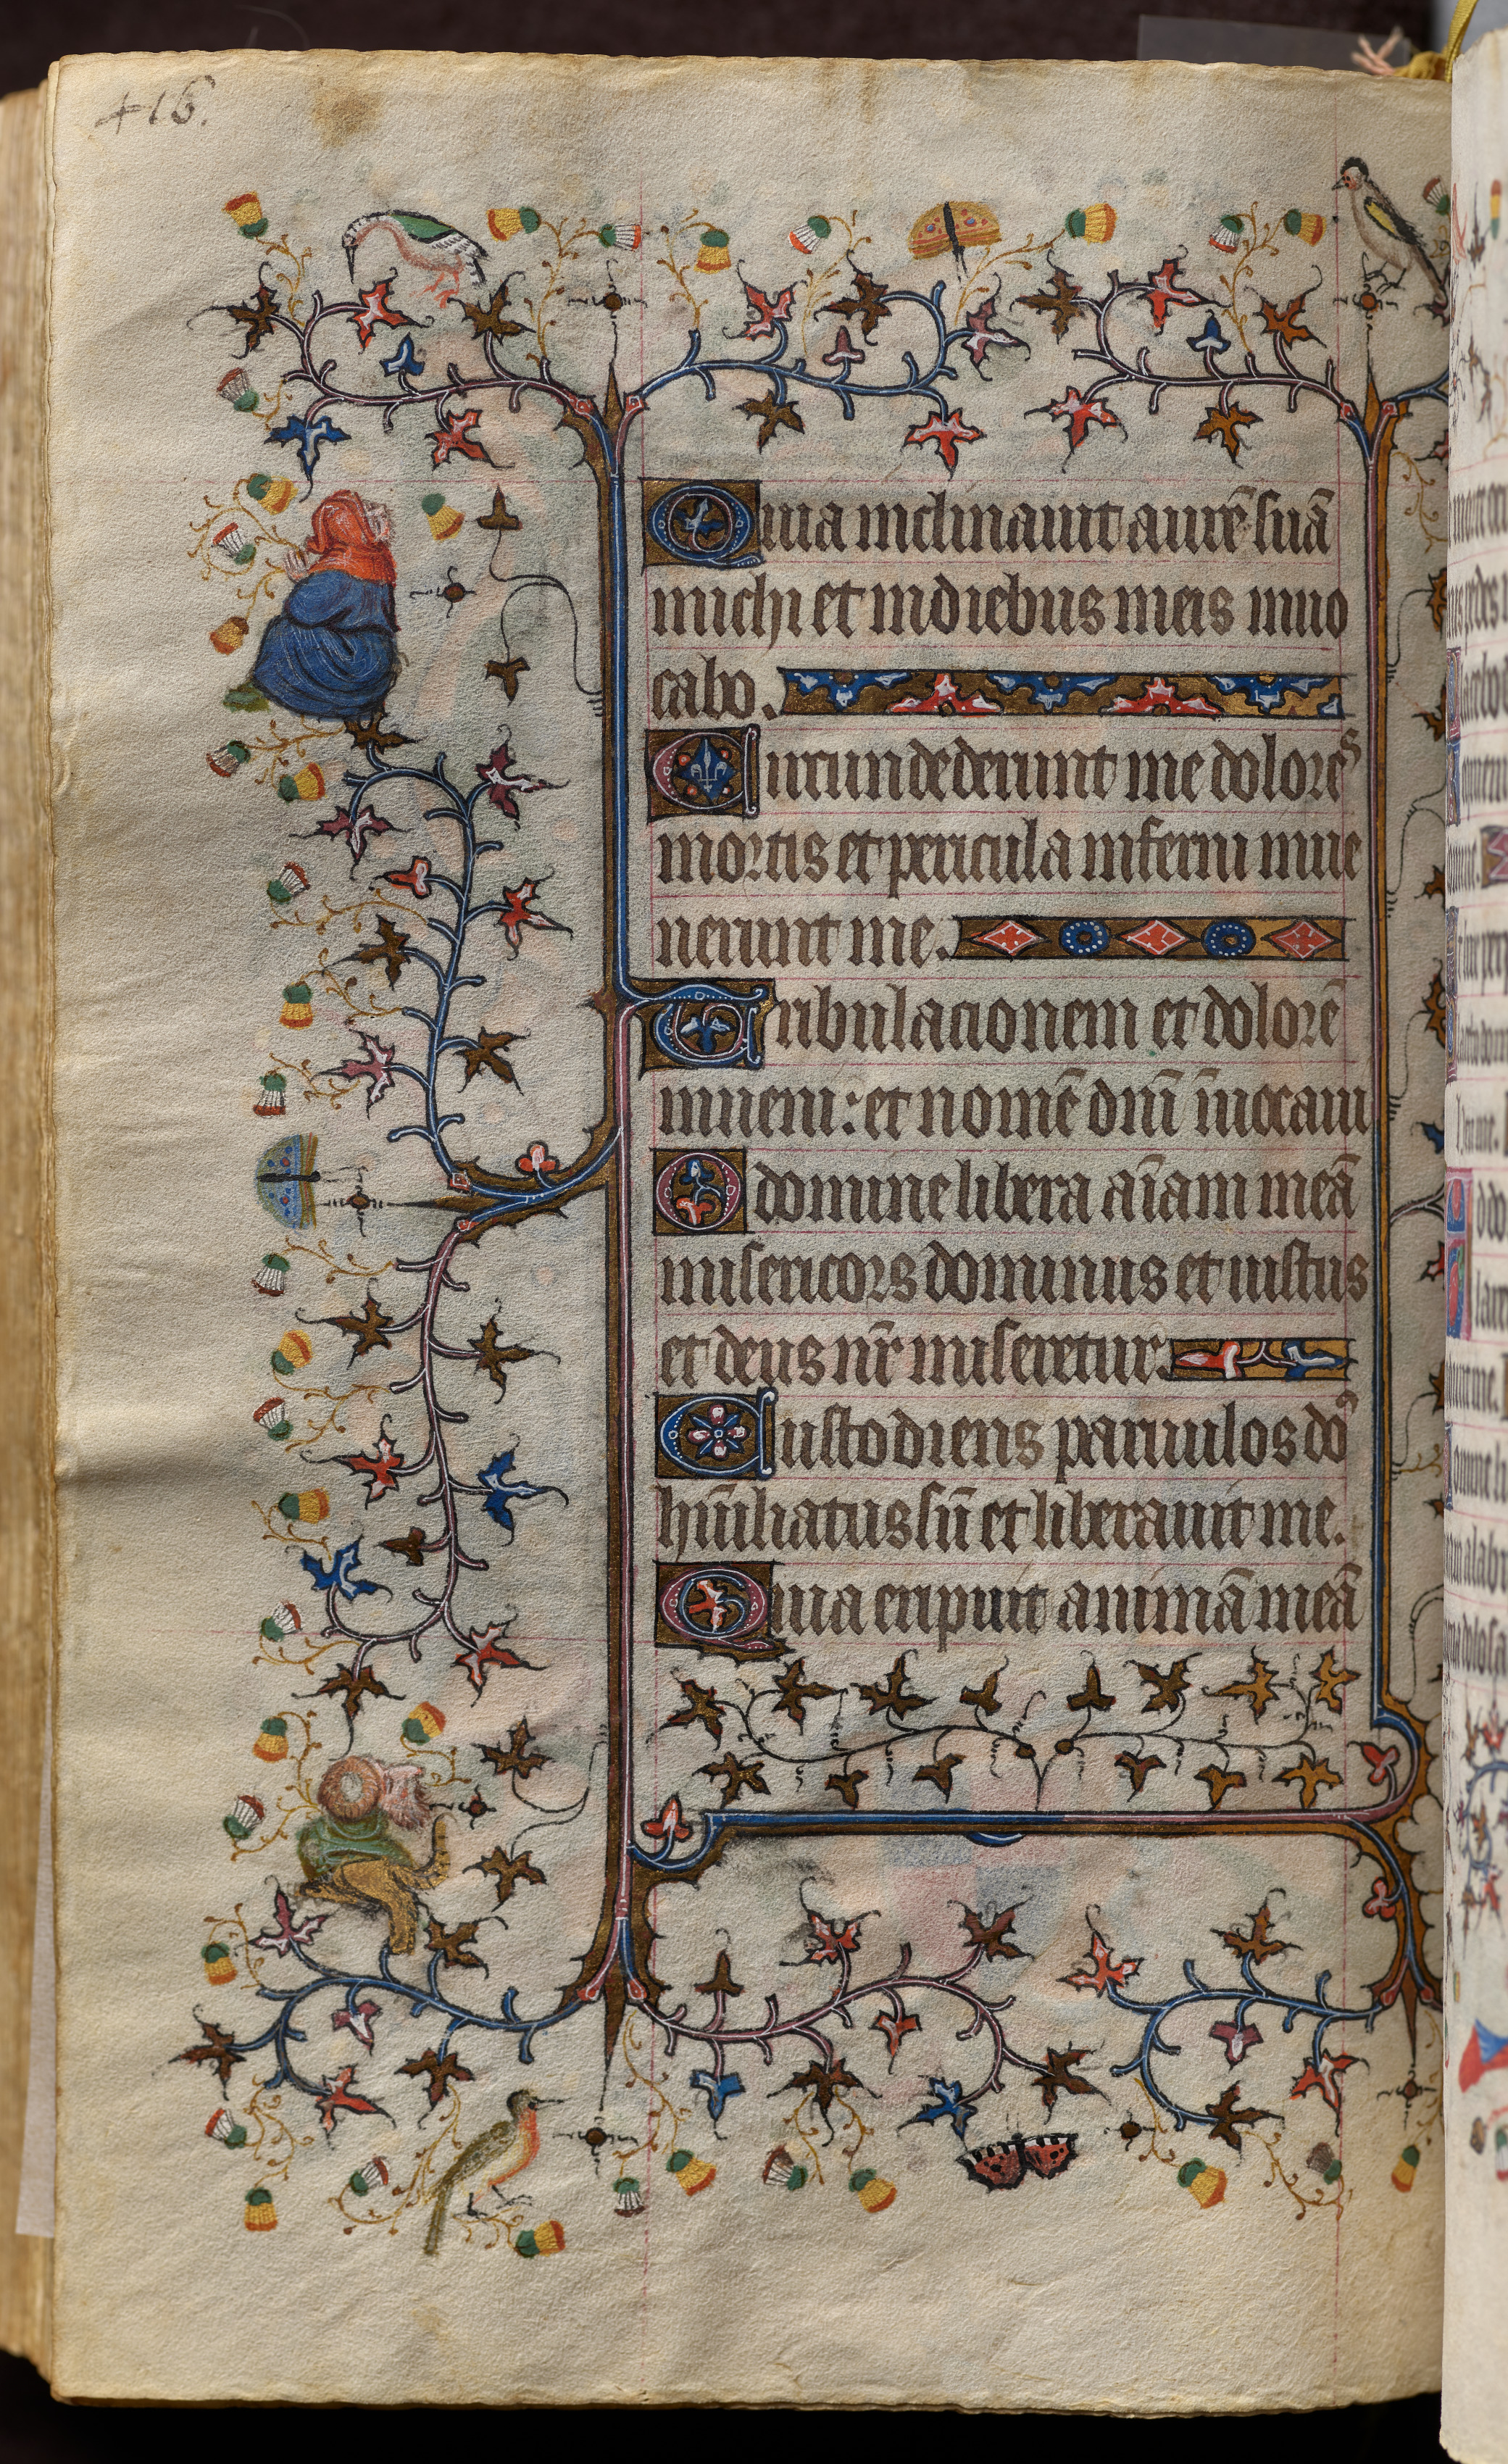 415.
Quia inclinauit aurē suā
michi et in diebus meis inuo
cabo.
Circundederunt me dolores
mortis et pericula inferni inue
nerunt me.
Tribulacionem et dolorē
inueni: et nomē dn̄i īuocaui
O domine libera aīam meā
misericors dominus et iustus
et deus nr̄ miseretur.
Custodiens paruulos do
hūiliatus sū et liberauit me.
Quia eripuit animā meā